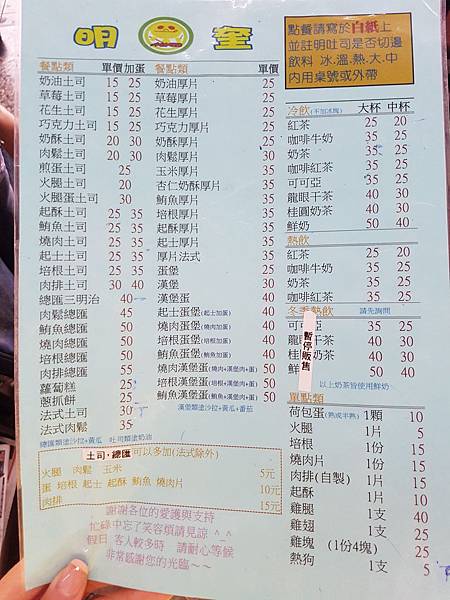 明 奎
點餐請寫於白紙上
並註明吐司是否切邊
飲料 冰.溫.熱.大.中
內用桌號或外帶
餐點類 單價 加蛋
奶油土司 15 25
草莓土司 15 25
花生土司 15 25
巧克力土司 15 25
奶酥土司 20 30
肉鬆土司 20 30
煎蛋土司 25
火腿土司 20
火腿蛋土司 30
起酥土司 25 35
鮪魚土司 25 35
燒肉土司 25 35
起士土司 25 35
培根土司 25 35
肉排土司 30 40
總匯三明治 40
肉鬆總匯 45
鮪魚總匯 50
燒肉總匯 50
培根總匯 50
肉排總匯 55
蘿蔔糕 25
蔥抓餅 25
法式土司 30
法式肉鬆 35
總匯類塗沙拉+黃瓜 吐司類塗奶油
餐點類 單價
奶油厚片 25
草莓厚片 25
花生厚片 25
巧克力厚片 25
奶酥厚片 25
肉鬆厚片 30
玉米厚片 35
杏仁奶酥厚片 35
鮪魚厚片 35
培根厚片 35
起酥厚片 35
起士厚片 35
厚片法式 35
蛋堡 25
漢堡 30
漢堡蛋 40
起士蛋堡(起士加蛋) 40
燒肉蛋堡(燒肉加蛋) 40
培根蛋堡(培根加蛋) 40
鮪魚蛋堡(鮪魚加蛋) 40
燒肉漢堡蛋(燒肉+漢堡肉+蛋) 50
培根漢堡蛋(培根+漢堡肉+蛋) 50
鮪魚漢堡蛋(鮪魚+漢堡肉+蛋) 50
漢堡類塗沙拉+黃瓜+番茄
冷飲(不加冰塊) 大杯 中杯
紅茶 25 20
咖啡牛奶 35 25
奶茶 35 25
咖啡紅茶 35 25
可可亞 35 25
龍眼干茶 40 30
桂圓奶茶 40 30
鮮奶 50 40
熱飲
紅茶 25 20
咖啡牛奶 35 25
奶茶 35 25
咖啡紅茶 35 25
冬季熱飲 請先詢問
暫停販售
可 35 25
龍眼 茶 40 30
桂 奶茶 40 30
鮮 50 40
以上奶茶皆使用鮮奶
單點類
荷包蛋(熟或半熟) 1顆 10
火腿 1片 5
培根 1份 15
燒肉片 1份 15
肉排(自製) 1片 15
起酥 1片 10
雞腿 1支 40
雞翅 1支 25
雞塊 (1份4塊) 25
熱狗 1支 5
土司.總匯可以多加(法式除外)
火腿 肉鬆 玉米 5元
蛋 培根 起士 起酥 鮪魚 燒肉片 10元
肉排 15元
謝謝各位的愛護與支持
忙碌中忘了笑容煩請見諒 ^_^
假日 客人較多時 請耐心等候
非常感謝您的光臨~~